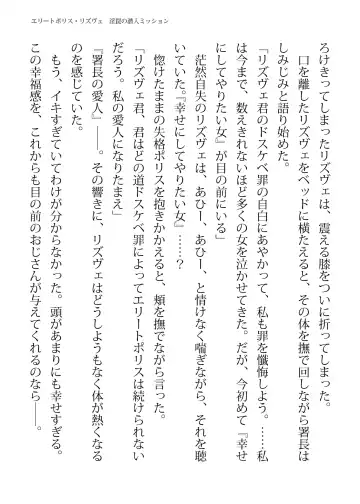 エリートポリス・リズヴェ　淫罠の潜入ミッション
ろけきってしまったリズヴェは、震える膝をついに折ってしまった。
　口を離したリズヴェをベッドに横たえると、その体を撫で回しながら署長は
しみじみと語り始めた。
「リズヴェ君のドスケベ罪の自白にあやかって、私も罪を懺悔しよう。……私
は今まで、数えきれないほど多くの女を泣かせてきた。だが、今初めて『幸せ
にしてやりたい女』が目の前にいる」
　茫然自失のリズヴェは、あひー、あひー、と情けなく喘ぎながら、それを聴
いていた。『幸せにしてやりたい女』……？
　惚けたままの失格ポリスを抱きかかえると、頬を撫でながら言った。
「リズヴェ君、君はどの道ドスケベ罪によってエリートポリスは続けられない
だろう。私の愛人になりたまえ」
『署長の愛人』――。その響きに、リズヴェはどうしようもなく体が熱くなる
のを感じていた。
　もう、イキすぎていてわけが分からなかった。頭があまりにも幸せすぎる。
この幸福感を、これからも目の前のおじさんが与えてくれるのなら――。